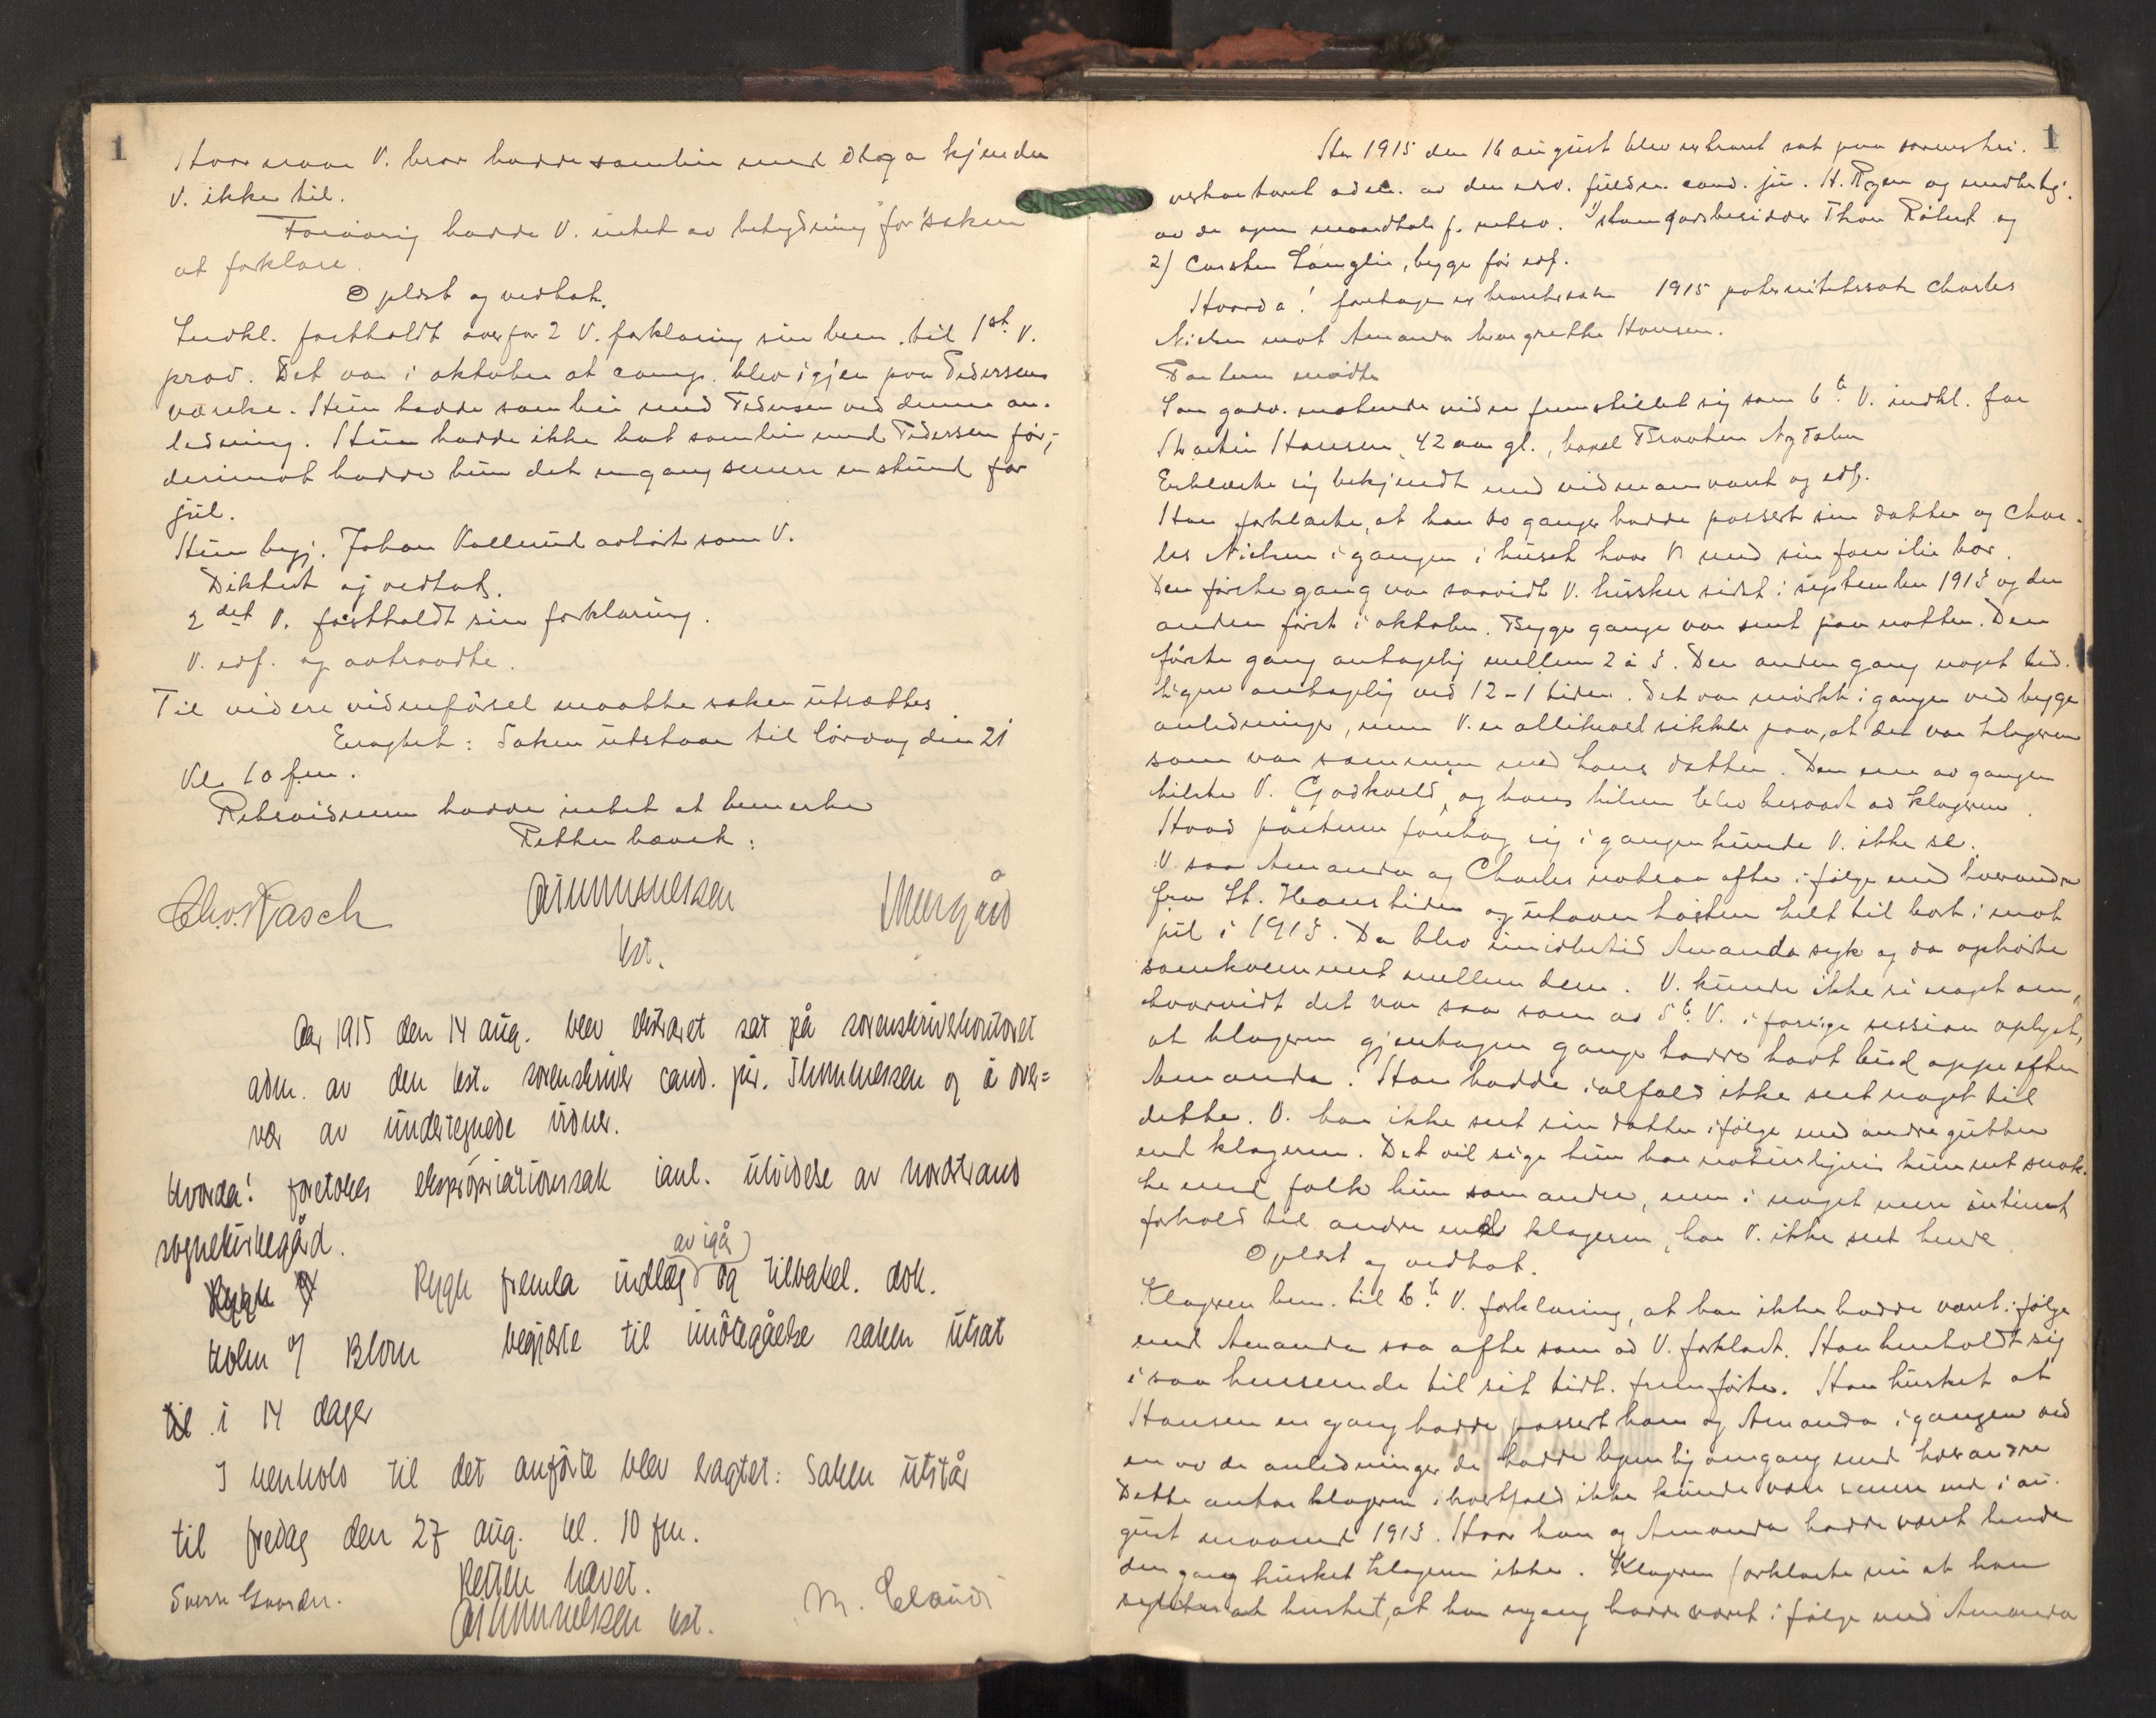 1
Hvor naar V. bror hadde samleie med Olaga kjender
V. ikke til.
Forøvrig hadde V. intet av betydning for saken
at forklare.
Oplæst og vedtat.
Indkl. fastholdt overfor 2 V. forklaring sin bem. til 1st V.
prov. Det var i oktober at camp. blev igjen paa Pedersens
værelse. Hun hadde samleie med Pedersen ved denne an-
ledning. Hun hadde ikke hat samleie med Pedersen før,
derimot hadde hun det engang senere en stund før
jul.
Hun begj. Johan Kollerud avhørt som V.
Diktert og vedtat.
2det V. fastholdt sin forklaring.
V. edf. og avtraadte.
Til videre vidneførsel maatte saken utsættes.
Eragtet: Saken utstaar til lørdag den 21
Kl. 10 fm.
Retsvidnerne hadde intet at bemerke
Retten hævet:
Chr. Rasch
kst.
Aar 1915 den 14 aug. blev ekstraret sat på sorenskriverkontoret
adm. av den kst. sorenskriver cand. jur. Thommessen og i over=
vær av undertegnede vidner.
Hvorda! foretokes ekspropriationssak i anl. utvidelse av Nordstrand
sognekirkegård.
Rygh fremla indlæg av igår og tilbakel. dok.
Holm og Blom begjærte til imøtegåelse saken utsat
i 14 dager
I henhold til det anførte blev eragtet: Saken utstår
til fredag den 27 aug. kl. 10 fm.
Retten hævet.
Sverre Gaarder.
kst.
M. Claudi
1
Aar 1915 den 16 august blev ekstraret sat paa sorenskri-
verkontoret adm. av den edsv. fuldm. cand. jur. H. Ryen og medbetj.
av de opn. mandtals f. retsv. 1) stamgodsbesidder Thor Røhrt og
2) Carsten Langlie, begge før edf.
Hvorda! foretages ekstraretssak 1915 paternitetssak Charles
Nielsen mot Amanda Margrethe Hansen.
Parterne mødte
Som godv. møtende vidne fremstillet sig som 6te V. indkl. far
Martin Hansen, 42 aar gl., bopæl Braaten Nydalen
Erklærte sig bekjendt med vidneansvaret og edf.
Han forklarte, at han to ganger hadde passert sin datter og Char-
les Nielsen i gangen i huset hvor V med sin familie bor.
Den første gang var saavidt V. husker sidst i september 1913 og den
anden først i oktober. Begge gange var sent paa natten. Den
første gang antagelig mellem 2 à 3. Den anden gang noget tid-
ligere antagelig ved 12-1 tiden. Det var mørkt i gangen ved begge
anledninger, men V. er allikevel sikker paa, at det var klageren
som var sammen med hans datter. Den ene av gangen
hilste V. "Godkveld", og hans hilsen blev besvart av klageren.
Hvad parterne foretog sig i gangen kunde V. ikke se.
V. saa Amanda og Charles rotsaa ofte i følge med hverandre
fra St. Hanstiden og utover høsten helt til bort imot
jul i 1913. Da blev imidlertid Amanda syk og da ophørte
samkvemmet mellem dem. V. kunde ikke si noget om,
hvorvidt det var saa som av 5te V. i forrige session oplyst,
at klageren gjentagne gange hadde havt bud oppe efter
Amanda. Han hadde ialfald ikke seet noget til
dette. V. har ikke seet sin datter i følge med andre gutter
end klageren. Det vil sige hun har naturligvis kunnet snak-
ke med folk hun som andre, men i noget mere intimt
forhold til andre end klageren, har V. ikke seet hende
Oplæst og vedtat.
Klageren bem. til 6te V. forklaring, at han ikke hadde været i følge
med Amanda saa ofte som av V. forklart. Han henholdt sig
i saa henseende til sit tidl. fremførte. Han husket at
Hansen en gang hadde passert ham og Amanda i gangen ved
en av de anledninger de hadde legemlig omgang med hverandre
Dette antar klageren i hvertfald ikke kunde være senere end i au-
gust maaned 1913. Hvor han og Amanda hadde været hende
den gang husket klageren ikke. Klageren forklarte nu at han
husket, at han engang hadde været i følge med Amanda